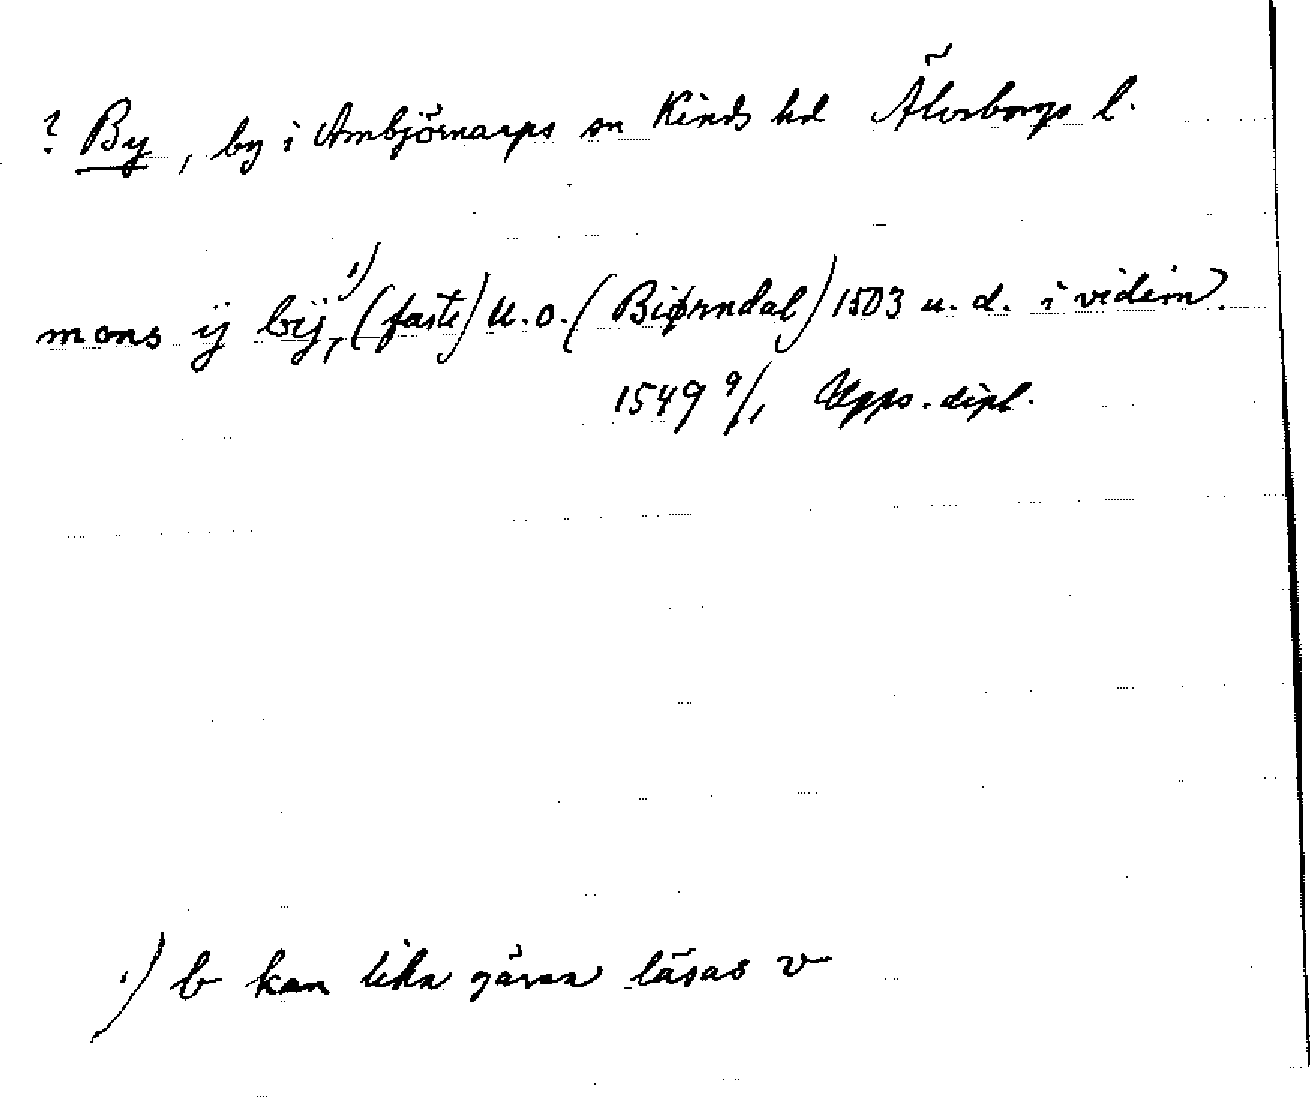 ? By, by i Ambjörnarps sn Kinds hd Älvsborgs l.
mons ÿ bÿ, 1) (faste) U.o. (Biørndal) 1503 u. d. i vidim.
1549 9/1 Upps. dipl.
1) b kan lika gärna läsas v